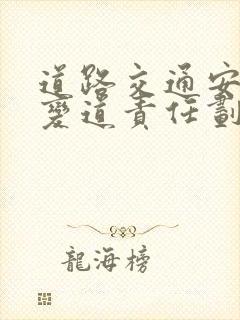 道路交通安
變道責任劃
龍海榜